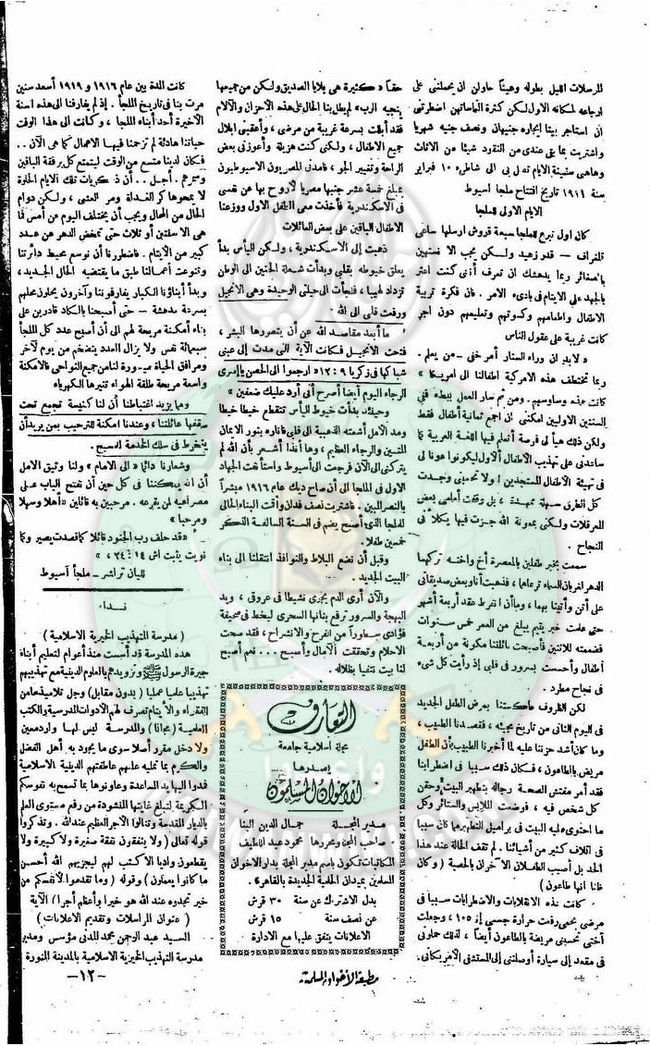 للمرسلات اقيل بطوله وعيناً حاولن ان يحملننى على
ارجاعه لمكانه الاول لكن كثرة التماساتهن اضطرتنى
ان استأجر بيتا ايجاره جنيهان ونصف جنيه شهريا
واشتريت بما بقى عندى من النقود شيئا من الاثاث
وهاهى سفينة الايام تدل بى الى شاطىء ١٠ فبراير
سنة ١٩١١ تاريخ افتتاح ملجأ اسيوط
الايام الاولى للملجأ
كان اول تبرع للملجأ سبعة قروش ارسلها ساعى
تلغراف — قدر زهيد ولكن يجب الا نستهين
بالصغائر ربما يدهشك ان تعرف أننى كنت اعثر
بالجهد على الايتام فى بادىء الامر . فان فكرة تربية
الاطفال واطعامهم وكسوتهم وتعليمهم دون اجر
كانت غريبة على عقول الناس
« لابد ان وراء الستار أمر خفى — من يعلم .
ربما تختطف هذه الامركية اطفالنا الى امريكا »
كانت هذه وساوسهم . ومن ثم سار العمل ببطء ففى
السنتين الاوليين امكننى ان اجمع ثمانية أطفال فقط
ولكن ذلك هيأ لى فرصة أتعلم فيها اللغة العربية كما
ساعدنى على تهذيب الاطفال ألاول ليكونوا عونا لى
فى تهيئة الاطفال المستجدين ! ولا تحسبنى وجدت
كل الطرق سهلة ممهدة ، بل وقفت أمامى بعض
العرقلات ولكنى بمعونة الله جزت فيها مكللا فى
النجاح .
سمعت بخبر طفلين بالمعصرة أخ واخته تركهما
الدهر لغربان السماء ترعاهما ، فذهبت أنا وبعض صديقاتى
على أتن وأتينا بهما ، وما ان انفرط عقد أربعة أشهر
حتى علمت خبر يتيم يبلغ من العمر خمس سنوات
فضممته للاثنين فأصبحت عائلتنا مكونة من أربعة
أطفال وأحسست بسرور فى قلبى إذ رأيت كل شىء
فى نجاح مطرد .
لكن الظروف عاكستنا بمرض الطفل الجديد
فى اليوم الثانى من تاريخ مجيئه ، فقصدنا الطبيب ،
وما كان أشد حزننا عليه لما أخبرنا الطبيب بأن الطفل
مريض بالطاعون ، فكان ذلك سببا فى اضطرابنا
فقد أمر مفتش الصحة رجاله بتطهير البيت وحقن
كل شخص فيه ، فوضعت الملابس والستائر وكل
ما احتوى عليه البيت فى براميل التطهير مما كان سببا
فى اتلاف كثير من أشيائنا . لم تقف الحالة عند هذا
الحد بل أصيب الطفلان الآخران بالحصبة ( وكان
ظننا انها طاعون )
كانت هذه الانقلابات والاضطرابات سببا فى
مرضى بحمى رفعت حرارة جسمى إلى ١٠٥ ، وجعلت
أختى تحسبنى مريضة بالطاعون أيضاً ، لذلك حملونى
فى مقعد إلى سيارة أوصلتنى إلى المستشفى الأمريكانى .
حقاً « كثيرة هى بلايا الصديق ولكن من جميعها
ينجيه الرب » لم يطل بنا الحال على هذه الاحزان والآلام
فقد أبللت بسرعة غريبة من مرضى ، وأعقبنى ابلال
جميع الاطفال ، ولكنى كنت هزيلة وأعوزنى بعض
الراحة وتغيير الجو ، فأمدنى المصريون الاسيوطيون
بمبلغ خمسة عشر جنيها مصريا لأروح بها عن نفسى
فى الاسكندرية فأخذت معى الطفل الاول ووزعنا
الاطفال الباقين على بعض العائلات
ذهبت إلى الاسكندرية ، ولكن اليأس بدأ
يعلق خيوطه بقلبى وبدأت شعلة الحنين الى الوطن
تزداد لهيبا ، فلجأت الى حيلتى الوحيدة وهى الانجيل
ورفعت قلبى الى الله .
ما أبعد مقاصد الله عن أن يتصورها البشر ،
فتحت الانجيل فكانت الآية التى مدت إلى عينى
شباكها فى زكريا ٩ : ١٢ « ارجعوا الى الحصن يا أسرى
الرجاء اليوم أيضا أصرح أنى أرد عليك ضعفين »
وحينئذ بدأت خيوط اليأس تتقطع خيطا خيطا
ومد الامل أشعته الذهبية الى قلبى فاناره بنور الايمان
المتين والرجاء العظيم ، وها أنذا أشعر بأن الله لم
يتركنى الى الآن فرجعت الى أسيوط واستأنفت الجهاد
الاول فى الملجأ الى أن صاح ديك عام ١٩١٦ مبشراً
بالنصر المبين . فاشتريت نصف فدان وأقمت البناء الحالى
للملجأ الذى أصبح يضم فى السنة السالفة الذكر
خمسين طفلا .
وقبل أن نضع البلاط والنوافذ انتقلنا الى بناء
البيت الجديد .
والآن أرى الدم يجرى نشيطا فى عروقى ، ويد
البهجة والسرور ترفع بنانها السحرى ليخط فى صحيفة
فؤادى سطوراً من الفرح والانشراح ، فقد صحت
الاحلام وتحققت الآمال وأصبح ... نعم أصبح
لنا بيت نتفيأ بظلاله .
التعارف
مجلة اسلامية جامعة
يصدرها
الاخوان المسلمون
مدير المجلة جمال الدين البنا
صاحب الحق ومحررها محمود عبد اللطيف
المكاتبات تكون باسم مدير المجلة بدار الاخوان
المسلمين بميدان الحلمية الجديدة بالقاهرة .
بدل الاشتراك عن سنة ٣٠ قرش
عن نصف سنة ١٥ قرش
الاعلانات يتفق عليها مع الادارة
مطبعة الأخوان المسلمين
كانت المدة بين عام ١٩١٦ و ١٩١٩ أسعد سنين
مرت بنا فى تاريخ الملجأ . إذ لم يفارقنا الى هذه السنة
الأخيرة أحد أبناء الملجأ ، وكانت الى هذا الوقت
حياتنا هادئة لم تزحمنا فيها الاعمال كما هى الآن ..
فكان لدينا متسع من الوقت ليتمتع كل برفقة الباقين
وسمرهم . أجل .. أن ذكريات تلك الايام الحلوة
لا يمحوها كر الغداة ومر العشى ، ولكن دوام
الحال من المحال ويجب أن يختلف اليوم من أمس فما
هى الا سنتين أو ثلاث حتى تمخض الدهر عن عدد
كبير من الأيتام . فاضطررنا أن نوسع محيط دائرتنا
وتنوعت أعمالنا طبق ما يقتضيه الحال الجديد ،
وبدأ أبناؤنا الكبار يفارقوننا وآخرون يحلون محلهم
بسرعة مدهشة — حتى أصبحنا بالكاد قادرين على
بناء أمكنة مريحة لهم الى أن أصبح عدد كل الملجأ
سبعمائة نفس ولا يزال العدد يتضخم من يوم لآخر
ومرافق الحياة ميسورة لنا من جميع النواحى فالامكنة
واسعة مريحة طلقة الهواء تنيرها الكهرباء
ومما يزيد اغتباطنا أن لنا كنيسة تجمع تحت
سقفها عائلتنا ، وعندنا امكنة للترحيب بمن يريد أن
ينخرط فى سلك الخدمة للمسيح .
وشعارنا دائما « الى الامام » ولنا وثيق الامل
أن الله يمكننا فى كل حين أن نفتح الباب على
مصراعيه لمن يقرعه . مرحبين به قائلين « اهلا وسهلا
ومرحبا »
« قد حلف رب الجنود قائلا كما قصدت يصير وكما
نويت يثبت اش ١٤ : ٢٤ » ،
لليان تراشر — ملجأ اسيوط
نداء
( مدرسة التهذيب الخيرية الاسلامية )
هذه المدرسة قد أسست منذ أعوام لتعليم أبناء
جيرة الرسول ﷺ وتزويدهم بالعلوم الدينية مع تهذيبهم
تهذيبا علميا عمليا ( بدون مقابل ) وجل تلاميذها من
الفقراء والأيتام تصرف لهم الأدوات المدرسية والكتب
العلمية ( مجانا ) والمدرسة ليس لها وارد معين
ولا دخل مقرر أصلا سوى ما يجود به أهل الفضل
والكرم بما تمليه عليهم عاطفتهم الدينية الاسلامية
فمدوا اليها يد المساعدة وعاونوها بما تسمح به نفوسكم
الكريمة لتبلغ غايتها المنشودة من رفع مستوى العلم
بالديار المقدسة وتنالوا الأجر العظيم عند الله . وتذكروا
قوله تعالى ( ولا ينفقون نفقة صغيرة ولا كبيرة ولا
يقطعون واديا الا كتب لهم ليجزيهم الله أحسن
ما كانوا يعملون ) وقوله ( وما تقدموا لأنفسكم من
خير تجدوه عند الله هو خيرا وأعظم أجرا ) الآية
( عنوان المراسلات وتقديم الاعانات )
السيد عبد الرحمن محمد المدنى مؤسس ومدير
مدرسة التهذيب الخيرية الاسلامية بالمدينة المنورة
— ١٢ —